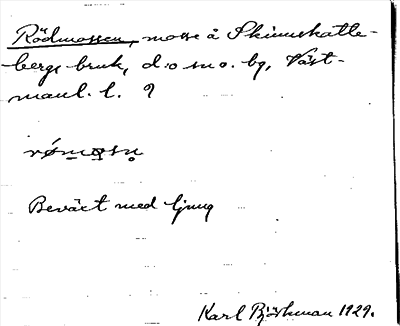 Rödmossen, mosse å Skinnskatte-
bergs bruk, d:o sn o. bg, Väst-
manl. l. ?
Beväxt med ljung
Karl Björkman 1929.